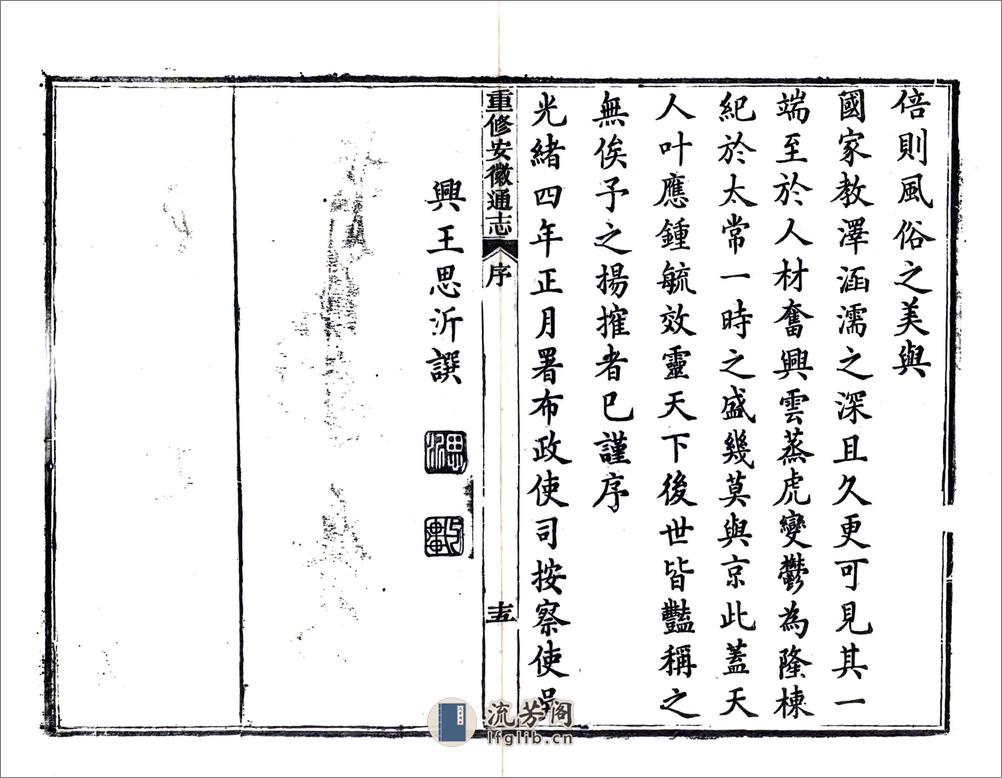 倍則風俗之美與
國家教澤涵濡之深且久更可見其一
端至於人材奮興雲蒸虎變鬱為隆棟
紀於太常一時之盛幾莫與京此蓋天
人叶應鍾毓效靈天下後世皆豔稱之
無俟予之揚搉者已謹序
光緒四年正月署布政使司按察使吳
重修安徽通志 序 十五
興王思沂譔
流芳阁
lfglib.cn